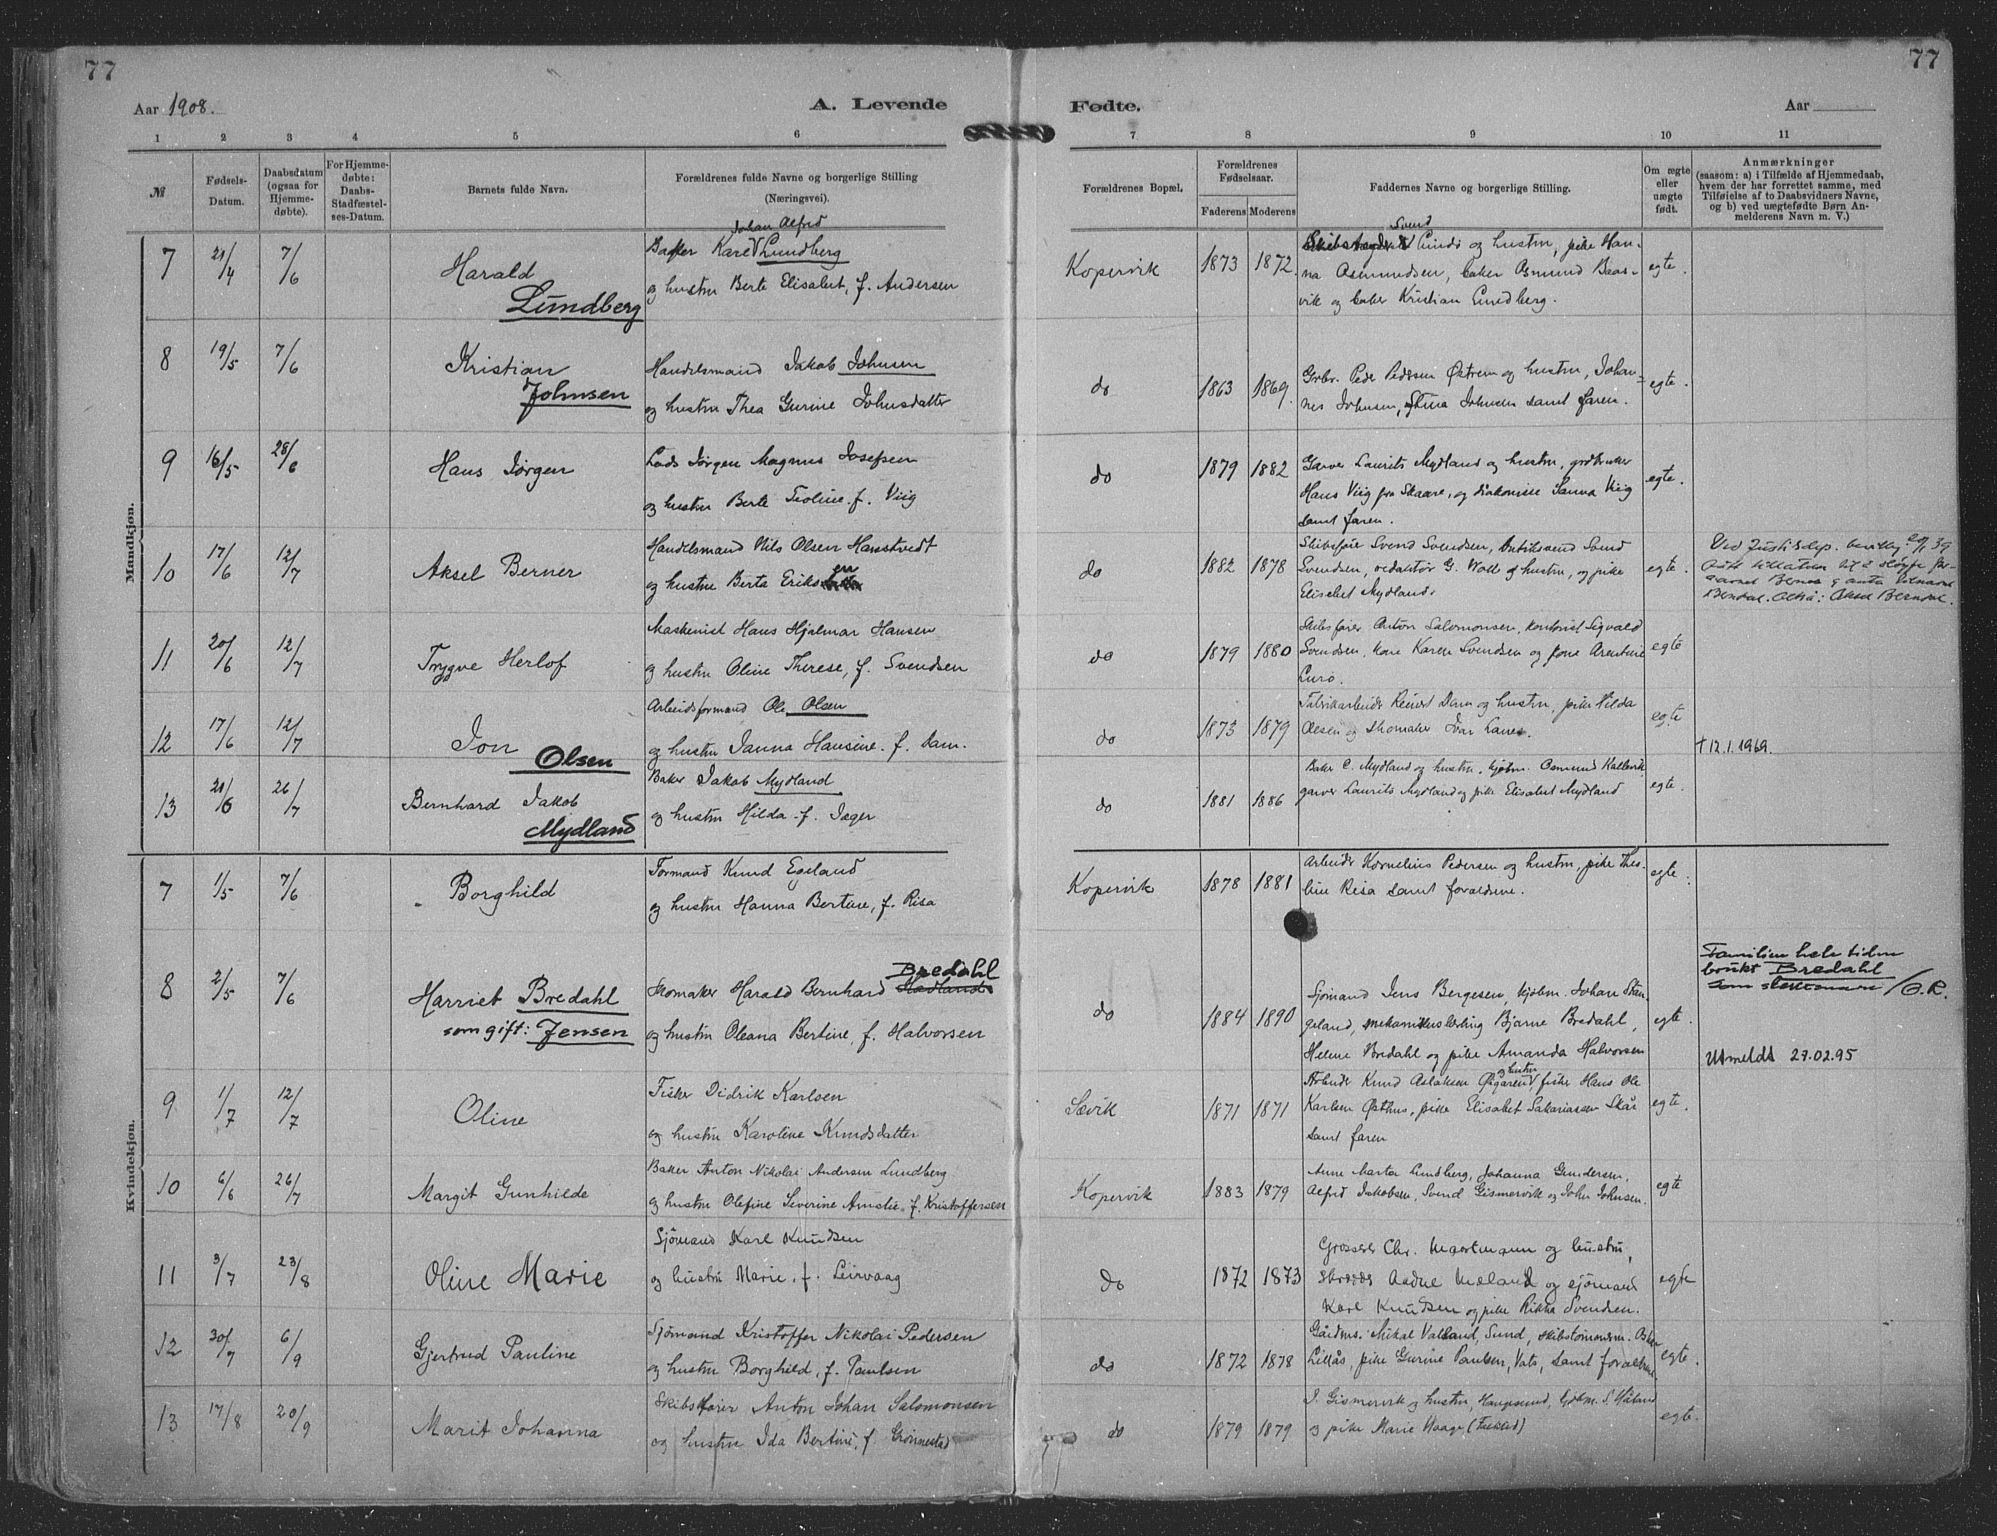 77
77
Aar 1908.
A. Levende
Fødte.
Aar
1 2 3 4 5 6 7 8 9 10 11
№
Fødsels-Datum.
Daabsdatum (ogsaa for Hjemmedøbte).
For Hjemmedøbte: Daabs-Stadfæstelses-Datum.
Barnets fulde Navn.
Forældrenes fulde Navne og borgerlige Stilling
(Næringsvei).
Forældrenes Bopæl.
Forældrenes Fødselsaar.
Faderens Moderens
Faddernes Navne og borgerlige Stilling.
Om ægte eller uægte født.
Anmærkninger
(saasom: a) i Tilfælde af Hjemmedaab,
hvem der har forrettet samme, med
Tilføielse af to Daabsvidners Navne,
og b) ved uægtefødte Børn Anmelderens Navn m. V.)
Mandkjøn.
7 21/4 7/6 Harald Lundberg
Johan Alfred
Baker Karl V Lundberg
og hustru Berte Elisabet, f. Andersen
Kopervik 1873 1872.
Svend
Lindø og hustru, pike Han-
na Asmundsen, baker Osmund Baas-
vik og baker Kristian Lundberg.
egte.
8 19/5 7/6 Kristian Johnsen
Handelsmand Jakob Johnsen
og hustru Thea Gurine Johnsdatter
do 1863 1869.
Peder Pedersen Østrem og hustru, Johan-
nes Johnsen, Stina Johnsen samt faren.
egte.
9 16/5 28/6 Hans Jørgen
Lods Jørgen Magnus Josefsen
og hustru Berte Teoline f. Viig
do 1879 1882
Garver Laurits Mydland og hustru,
Hans Viig fra Skaare, og diakonisse Sanna Viig
samt faren.
egte.
10 17/6 12/7 Aksel Berner
Handelsmand Nils Olsen Hanstvedt
og hustru Berta Eriksen
do 1882 1878
Skibsfører Svend Svendsen,
Svendsen, redaktør G. Wold og hustru, og pike
Elisabet Mydland.
egte.
Ved Justisdep. bevilling
Berndal. Altså: Aksel Berndal.
11 20/6 12/7 Trygve Herlof
Maskinist Hans Hjalmar Hansen
og hustru Oline Therese, f. Svendsen
do 1879 1880
Skibsfører Anton Salomonsen, kontorist Sigvald
Svendsen, kone Karen Svendsen og kone
egte
12 17/6 12/7 Jon Olsen
Arbeidsformand Ole Olsen
og hustru Janna Hansine f. Dam.
do 1873 1879
Fabrikarbeider Reinert Dam og hustru, pike Hilda
Olsen og skomaker Ivar
egte
† 12.1.1969.
13 21/6 26/7 Bernhard Jakob Mydland
Baker Jakob Mydland
og hustru Hilda f. Jæger
do 1881 1886
Baker C. Mydland og hustru, kjøbm. Osmund Kallevik
garver Laurits Mydland og pike Elisabet Mydland
egte.
Kvindekjøn.
7 1/5 7/6 Borghild
Formand Knud Egeland
og hustru Hanna Bertine, f. Risa
Kopervik 1878 1881
Arbeider Kornelius Pedersen og hustru, pike
Risa samt foraldrene.
egte.
8 2/5 7/6 Harriet Bredahl
som gift: Jensen
Bredahl
Skomaker Harald Bernhard
og hustru Oleana Bertine, f. Halvorsen
do 1884 1890
Sjømand Jens Bergesen, kjøbm. Johan Stan-
geland, mekanikerlærling Bjarne Bredahl,
Helene Bredahl og pike Amanda Halvorsen
egte.
Familien hele tiden
brukt Bredahl
som slektsnavn /O.R.
Utmeldt 27.02.95
9 1/7 12/7 Oline
Fisker Didrik Karlsen
og hustru Karolene Knudsdatter
Sævik 1871 1871
og hustru
Arbeider Knud Aslaksen Øigaren V, fisker Hans Ole
Karlsen Østhus, pike Elisabet Sakariasen Skår
samt faren
egte.
10 6/6 26/7 Margit Gunhilde
Baker Anton Nikolai Andersen Lundberg
og hustru Olefine Severine Amalie f. Kristoffersen
Kopervik 1883 1879
Anne Marta Lundberg, Johanna Gundersen,
Alfred Jakobsen, Svend Gismervik og John Johnsen.
egte
11 3/7 23/8 Oline Marie
Sjömand Karl Knudsen
og hustru Marie, f. Leirvaag
do 1872 1873
Grosserer Chr. Maartmann og hustru,
Aadne Mæland og sjömand
Karl Knudsen og pike Rikka Svendsen.
egte
12 30/7 6/9 Gjertrud Pauline
Sjømand Kristoffer Nikolai Pedersen
og hustru Borghild, f. Paulsen
do 1872 1878
Gårdms. Mikal Valland, Sund,
Lillås, pike Gurine Paulsen, Vats, samt foraldrene
egte.
13 17/8 20/9 Marit Johanna
Skibsfører Anton Johan Salomonsen
og hustru Ida Bertine, f. Grønnestad
do 1879 1879
J. Gismervik og hustru, Haugesund, kjøbm. S. Håland
og pike Marie Waage
egte.